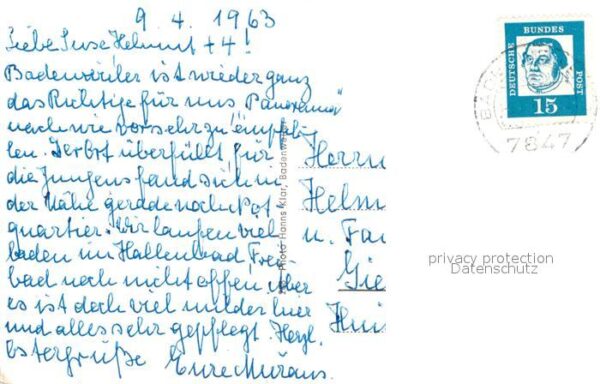 9. 4. 1963
Liebe Suse Helmut + 4!
Badenweiler ist wieder ganz
das Richtige für uns "Panorama"
nach wie vor sehr zu empfeh
len. Selbst überfüllt für
die Jungens fand sich in
der Nähe gerade noch Not
quartier. Wir laufen viel
baden im Hallenbad Frei
bad noch nicht offen. Aber
es ist doch viel milder hier
und alles sehr gepflegt. Herzl.
Ostergrüße Eure
Photo Hanns Klar, Badenweiler
DEUTSCHE BUNDESPOST
15
7847
Herrn
Helm
u. Fam
Gie
privacy protection
Datenschutz